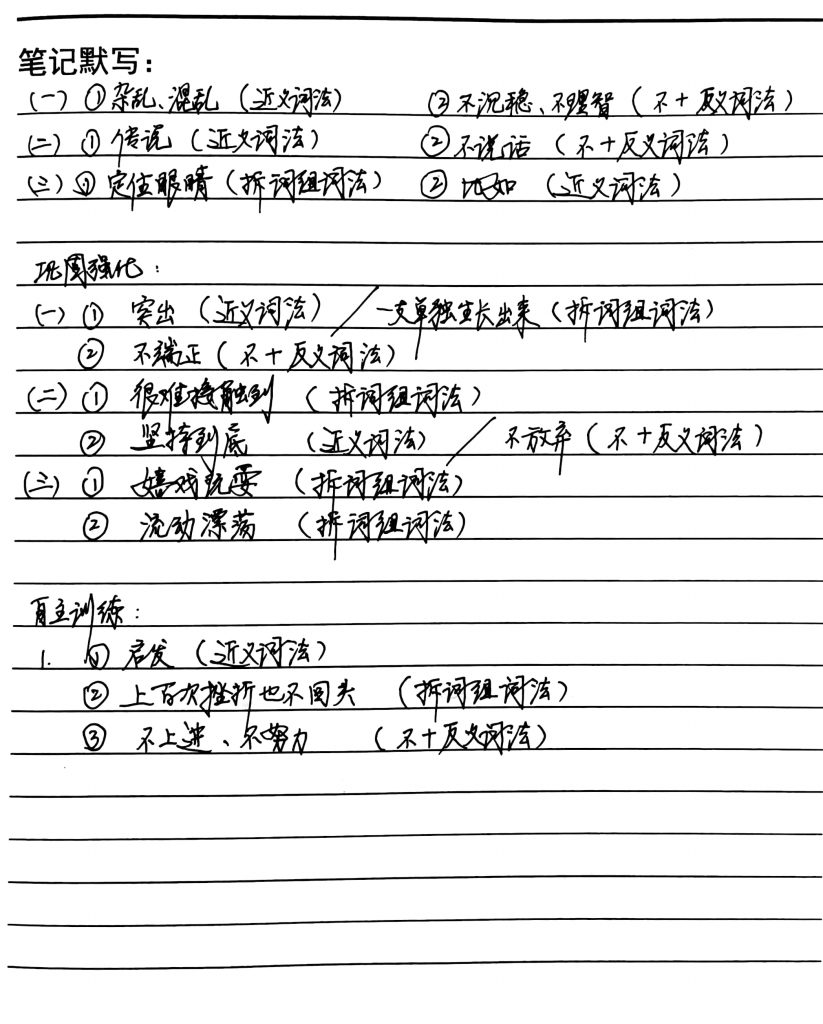 笔记默写：
(一) ① 杂乱、混乱 (近义词法) ② 不沉稳、不理智 (不+反义词法)
(二) ① 传说 (近义词法) ② 不说话 (不+反义词法)
(三) ① 定住眼睛 (拆词组词法) ② 比如 (近义词法)
巩固强化：
(一) ① 突出 (近义词法) / 一支单独生长出来 (拆词组词法)
② 不端正 (不+反义词法)
(二) ① 很难接触到 (拆词组词法)
② 坚持到底 (近义词法) / 不放弃 (不+反义词法)
(三) ① 嬉戏玩耍 (拆词组词法)
② 流动漂荡 (拆词组词法)
自主训练：
1. ① 启发 (近义词法)
② 上百次挫折也不回头 (拆词组词法)
③ 不上进、不努力 (不+反义词法)